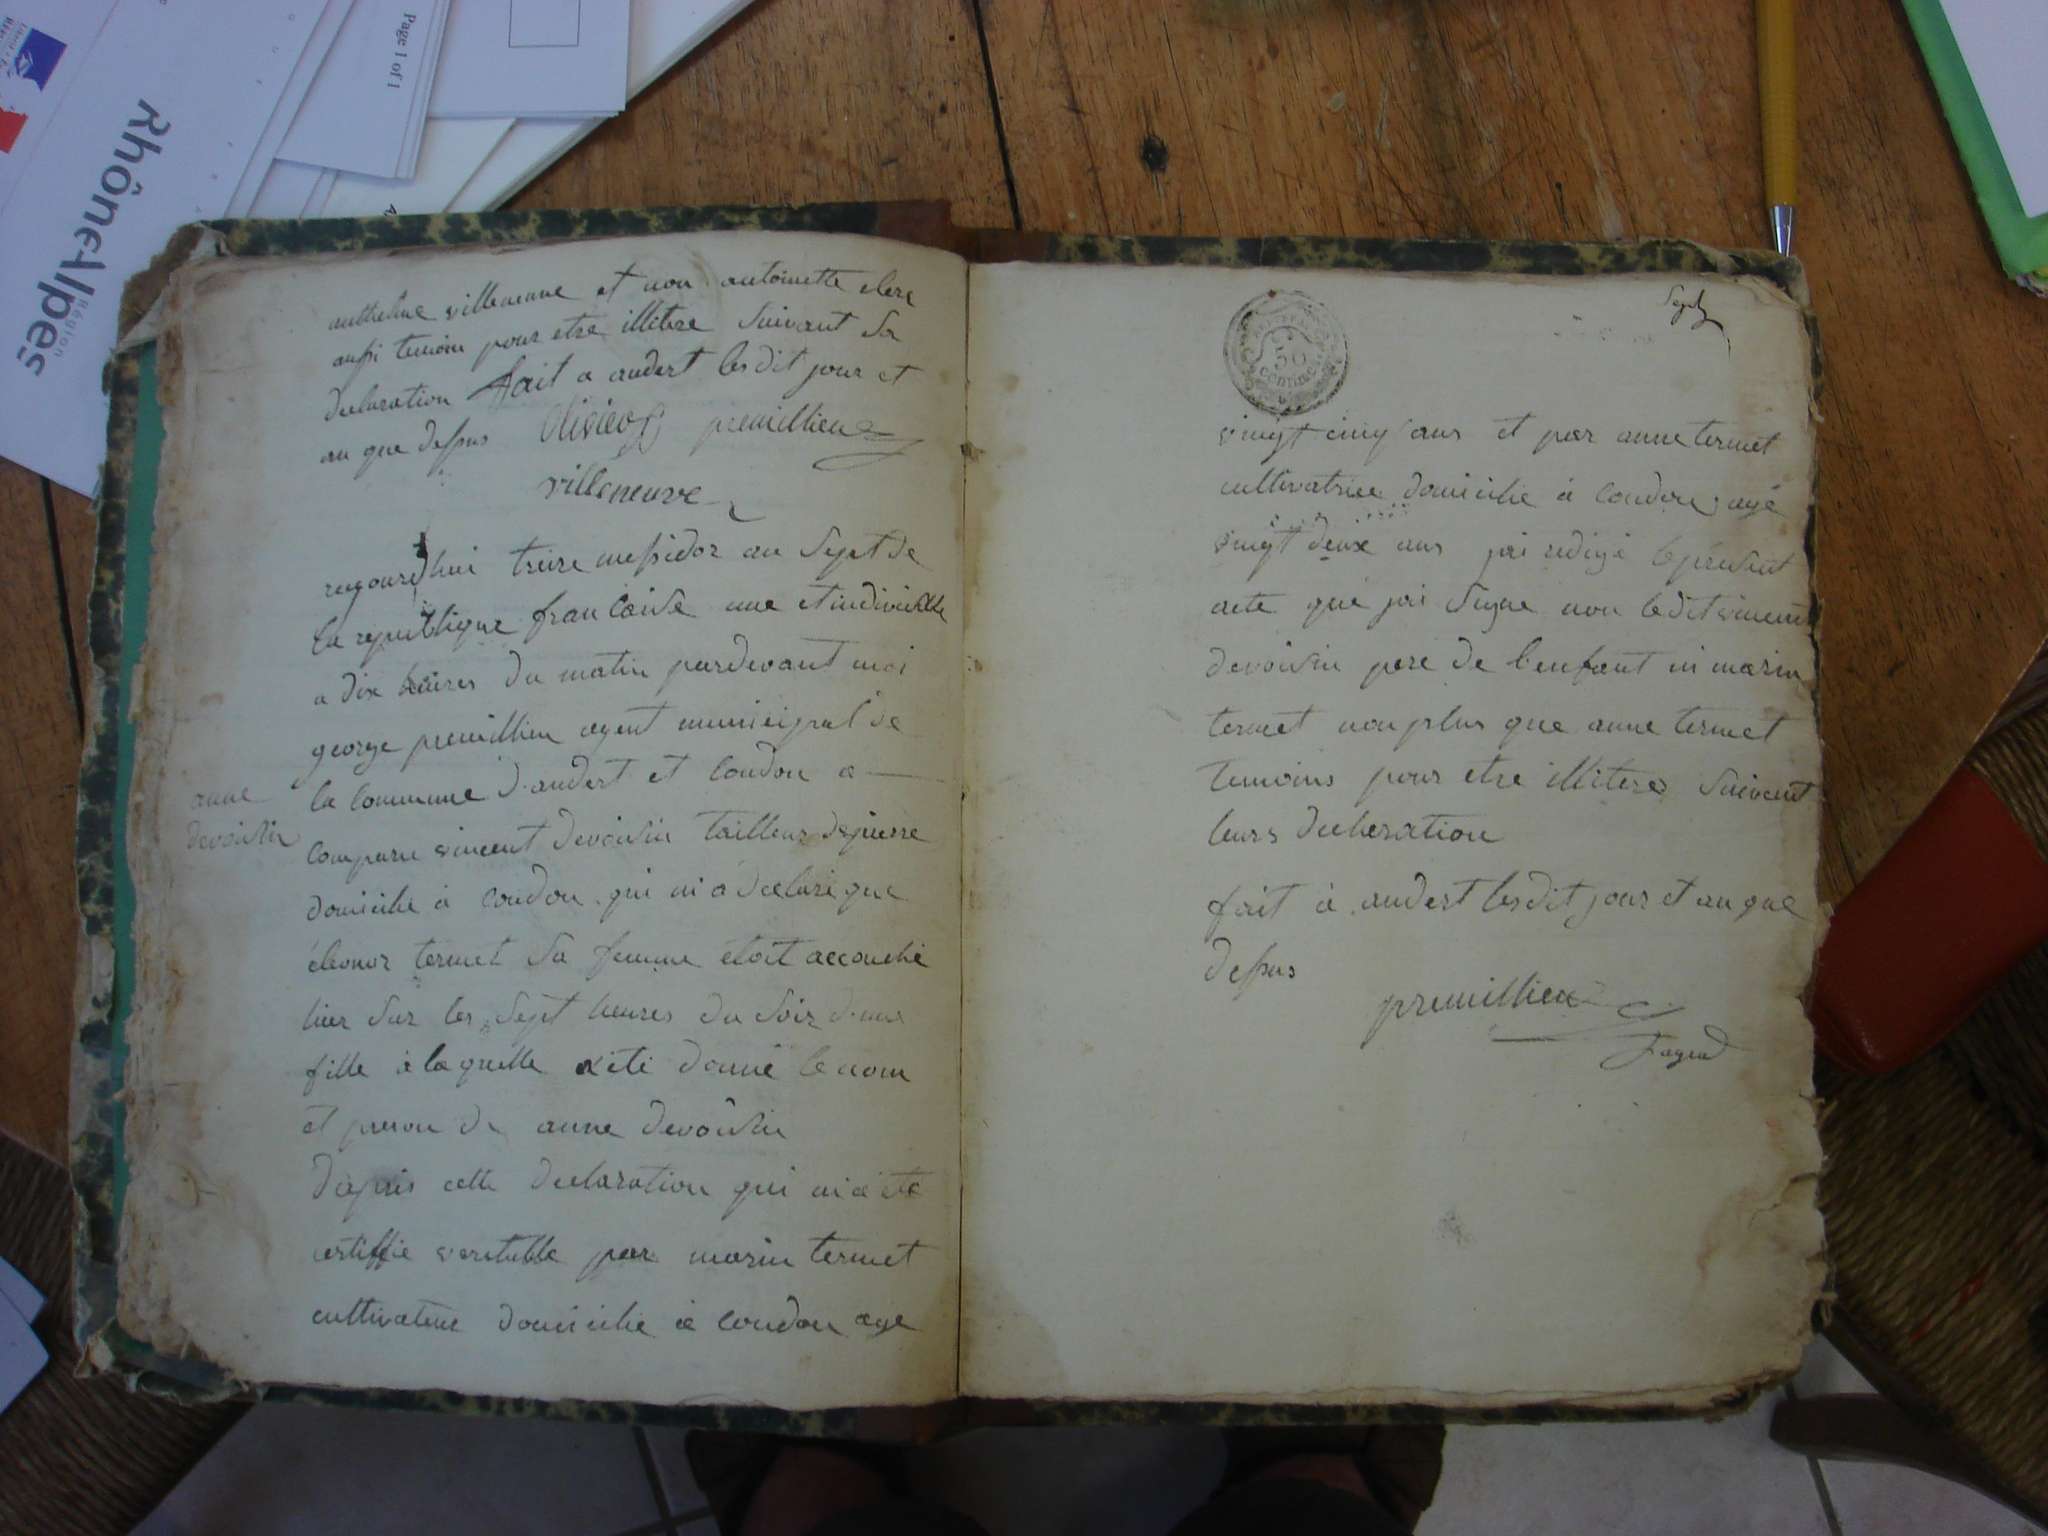 Rhône-Alpes
Région
Page 1 of 1
anthelme villeneuve et non antoinette clerc
aussi temoin pour etre illitere Suivant Sa
declaration fait a andert les dit jour et
an que dessus Olivier premillieu
villeneuve
aujourdhui treize messidor an Sept de
la republique francaise une et indivisible
a dix heures du matin pardevant moi
george premillieu agent municipal de
la commune d'andert et condon a
anne
devoisin
comparu vincent devoisin tailleur depierre
domicilié à condon qui m'a déclaré que
éleonor termet Sa femme étoit accouché
hier Sur les Sept heures du Soir d'une
fille à laquelle a été donné le nom
et prenon de anne devoisin
d'après cette declaration qui m'a été
certiffié veritable par marin termet
cultivateur domicilié à condon age
Sept
50
centimes
vingt cinq ans et par anne termet
cultivatrice domicilié à condon agé
vingt deux ans jai redigé le présent
acte que jai Signe non ledit vincent
devoisin pere de l'enfant ni marin
termet non plus que anne termet
temoins pour etre illiteres Suivant
leurs decleration
fait à andert lesdit jour et an que
dessus
premillieu